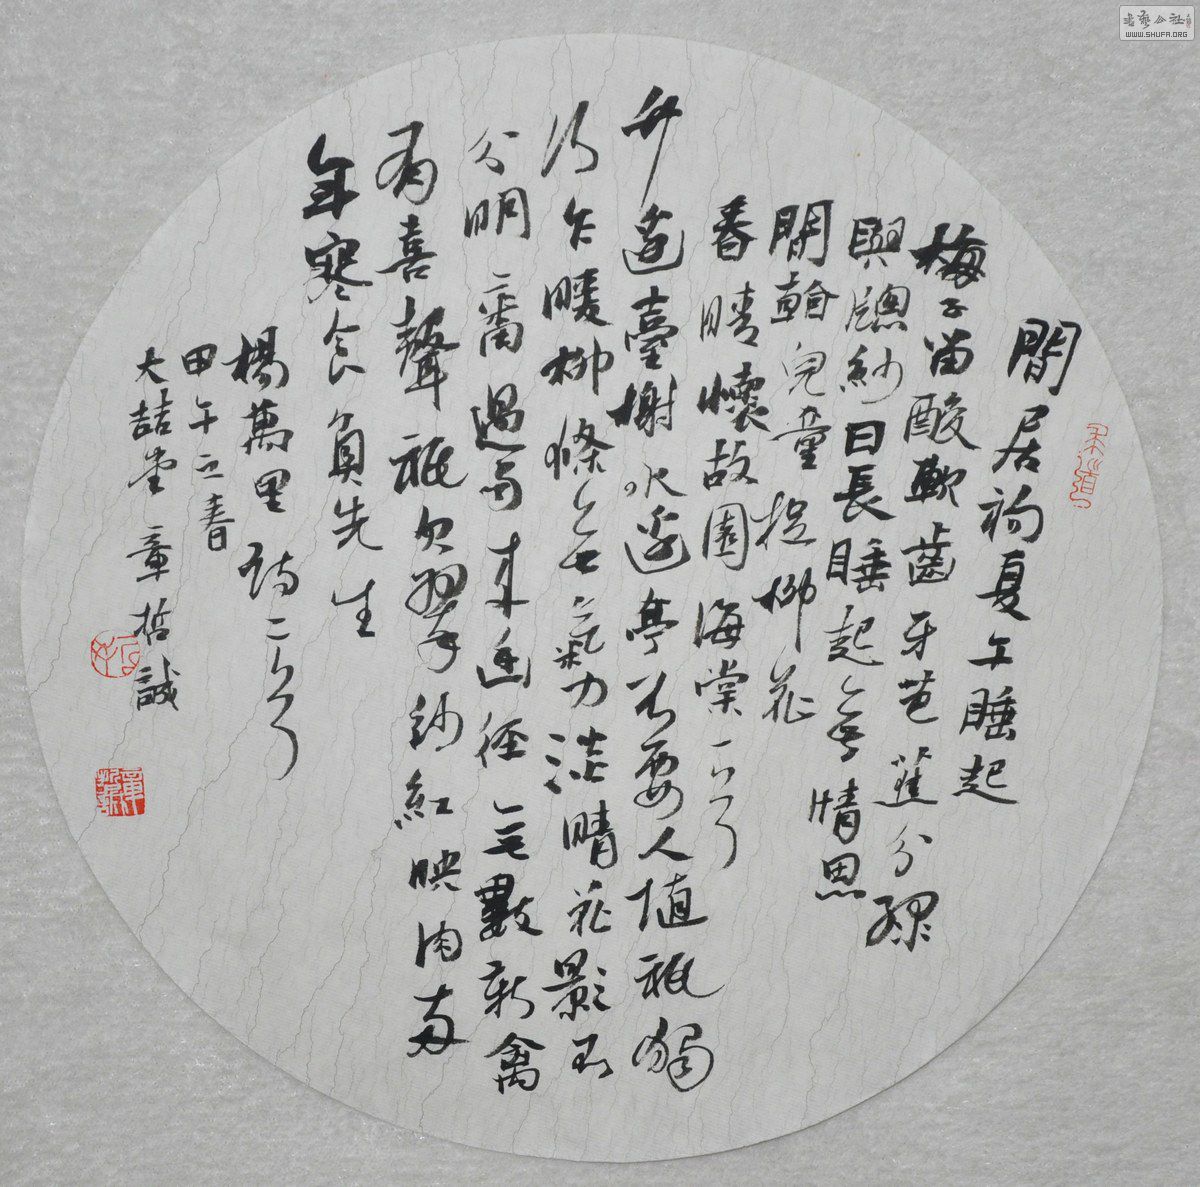 閒居初夏午睡起
梅子留酸軟齒牙芭蕉分綠
與牕紗日長睡起無情思
閒看兒童捉柳花
春晴懷故園海棠一首
竹邊臺榭水邊亭不要人隨祇獨
行乍暖柳條無氣力淡晴花影不
分明一番過雨來幽徑無數新禽
有喜聲祇欠翠紗紅映肉兩
年寒食負先生
楊萬里詩二首
甲午之春
大喆堂章哲誠
书艺公社
WWW.SHUFA.ORG